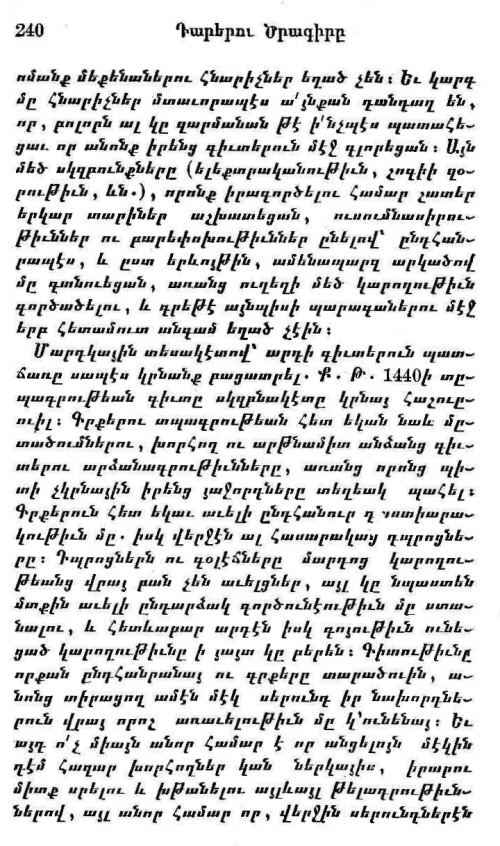 240 Դարերու Ծրագիրը
ոմանք մեքենաներու հնարիչներ եղած չեն։ Եւ կարգ
մը հնարիչներ մտաւորապէս ա՛յնքան դանդաղ են,
որ, բոլորն ալ կը զարմանան թէ ի՛նչպէս պատահե-
ցաւ որ անոնք իրենց գիւտերուն մէջ գլորեցան։ Այն
մեծ սկզբունքները (ելեքտրականութիւն, շոգիի զօ-
րութիւն, ևն.), որոնք իրագործելու համար շատեր
երկար տարիներ աշխատեցան, ուսումնասիրու-
թիւններ ու բարեփոխութիւններ ընելով՝ ընդհան-
րապէս, և ըստ երևոյթին, ամենապարզ արկածով
մը գտնուեցան, առանց ուղեղի մեծ կարողութիւն
գործածելու, և գրեթէ այնպիսի պարագաներու մէջ
երբ հետամուտ անգամ եղած չէին։
Մարդկային տեսակէտով՝ արդի գիւտերուն պատ-
ճառը սապէս կրնանք բացատրել. Ք. Թ. 1440ի տը-
պագրութեան գիւտը սկզբնակէտը կրնայ հաշուը-
ուիլ։ Գրքերու տպագրութեան հետ եկան նաև մը-
տածումներու, խորհող ու արթնամիտ անձանց գիւ-
տերու արձանագրութիւնները, առանց որոնց պի-
տի չկրնային իրենց յաջորդները տեղեակ պահել։
Գրքերուն հետ եկաւ աւելի ընդհանուր դաստիարա-
կութիւն մը. իսկ վերջէն ալ հասարակաց դպրոցնե-
րը։ Դպրոցներն ու գօլէճները մարդոց կարողու-
թեանց վրայ բան չեն աւելցներ, այլ կը նպաստեն
մտքին աւելի ընդարձակ գործունէութիւն մը ստա-
նալու, և հետևաբար արդէն իսկ գոյութիւն ունե-
ցած կարողութիւնը ի յայտ կը բերեն։ Գիտութիւնը
որքան ընդհանրանայ ու գրքերը տարածուին, ա-
նոնց տիրացող ամէն մէկ սերունդ իր նախորդնե-
րուն վրայ որոշ առաւելութիւն մը կ՚ունենայ։ Եւ
այդ ո՛չ միայն անոր համար է որ անցելոյն մէկին
դէմ հազար խորհողներ կան ներկայիս, իրարու
միտք սրելու և խթանելու այլևայլ թելադրութիւն-
ներով, այլ անոր համար որ, վերջին սերունդներէն